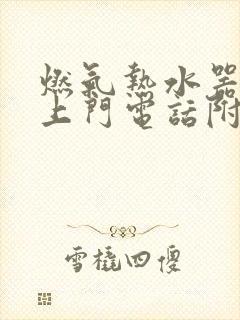 燃氣熱水器
上門電話附
雪橇四傻